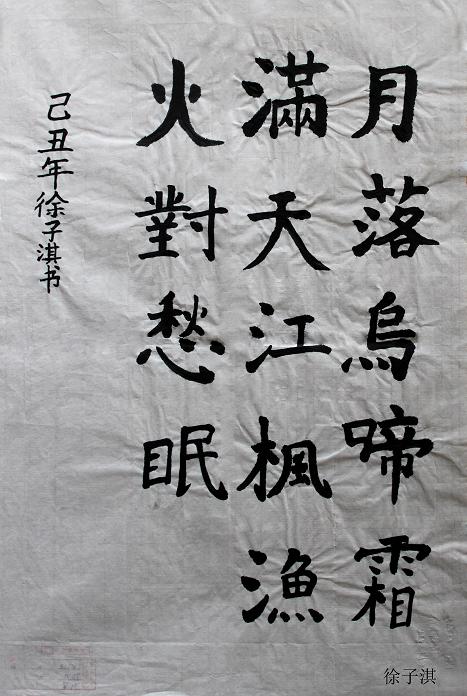 月落烏啼霜
滿天江楓漁
火對愁眠
己丑年徐子淇书
徐子淇